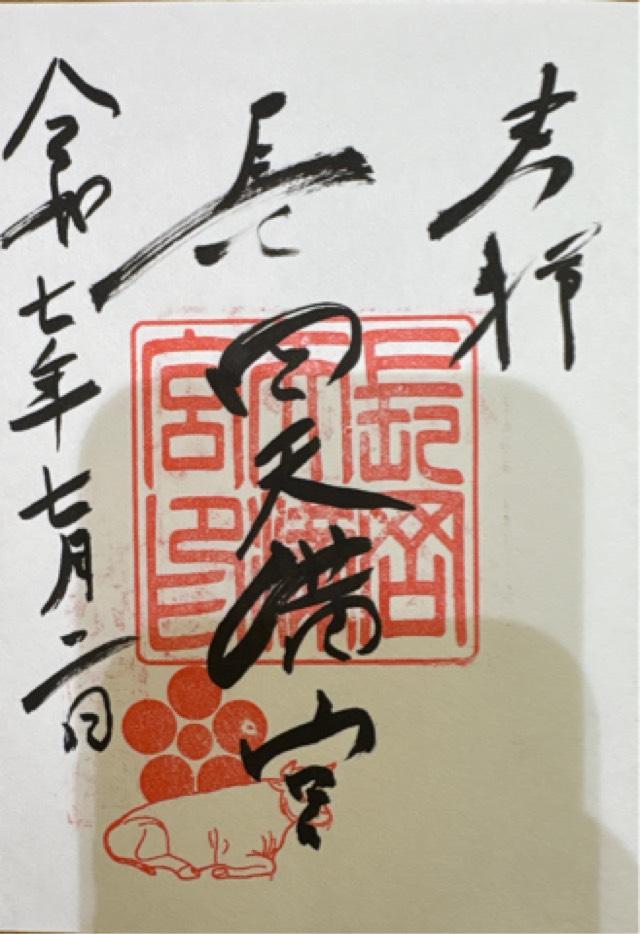 奉拝
長岡天満宮
長岡天満宮印
令和七年七月二日